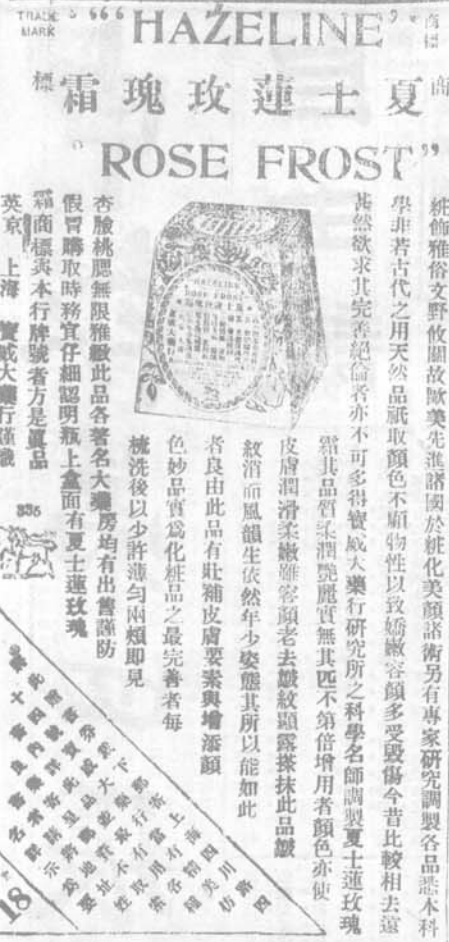 TRADE MARK
"HAZELINE"
商標
商標
夏士蓮玫瑰霜
"ROSE FROST"
HAZELINE
粧飾雅俗文野攸關故歐美先進諸國於粧化美顏諸術另有專家研究調製各品悉本科
學非若古代之用天然品祇取顏色不顧物性以致嬌嫩容顏多受毀傷今昔比較相去遠
甚然欲求其完善絕倫者亦不可多得寶威大藥行研究所之科學名師調製夏士蓮玫瑰
霜其品質柔潤艷麗實無其匹不第倍增用者顏色亦使
皮膚潤滑柔嫩雖容顏老去皺紋顯露搽抹此品皺
紋消而風韻生依然年少姿態其所以能如此
者良由此品有壯補皮膚要素與增添顏
色妙品實爲化粧品之最完善者每
梳洗後以少許薄勻兩頰即見
杏臉桃腮無限雅緻此品各著名大藥房均有出售謹防
假冒購取時務宜仔細認明瓶上盒面有夏士蓮玫瑰
霜商標與本行牌號者方是眞品
英京 上海 寶威大藥行謹識
336
18